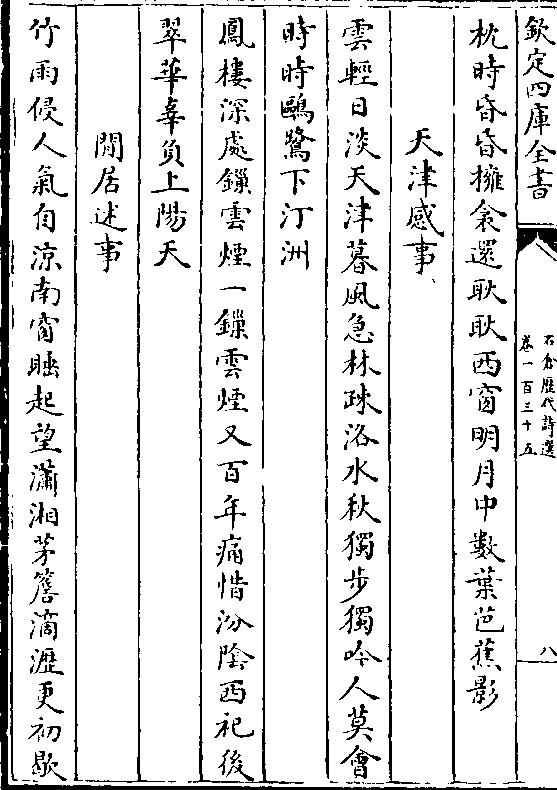 欽定四庫全書
石倉歷代詩選
卷一百三十五
八
枕時昏昏擁衾還耿耿西窗明月中數葉芭蕉影
天津感事
雲輕日淡天津暮風急林疎洛水秋獨步獨吟人莫會
時時鷗鷺下汀洲
鳳樓深處鏁雲煙一鏁雲煙又百年痛惜汾陰西祀後
翠華辜負上陽天
閒居述事
竹雨侵人氣自涼南窗睡起望瀟湘茅簷滴瀝更初歇